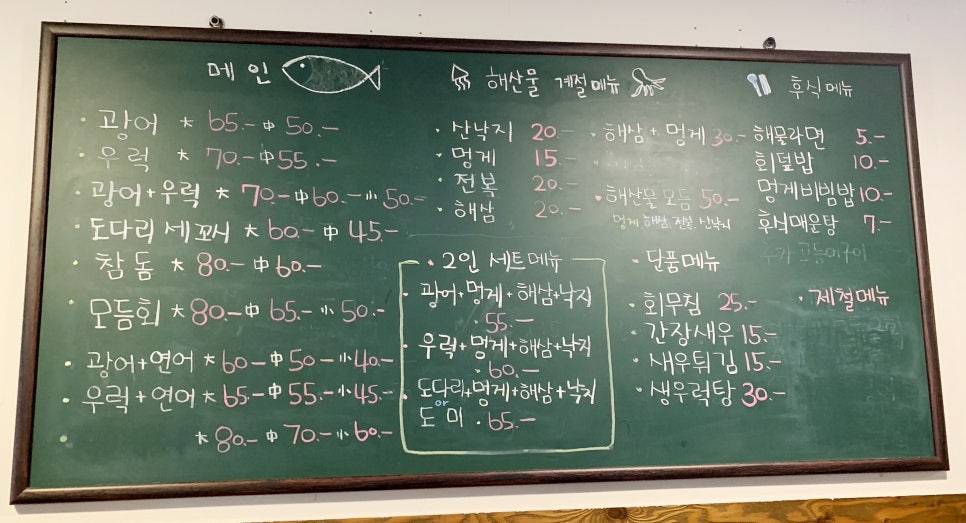 메인
· 광어 大 65.- 中 50.-
· 우럭 大 70.- 中 55.-
· 광어+우럭 大 70.- 中 60.- 小 50.-
· 도다리 세꼬시 大 60.- 中 45.-
· 참돔 大 80.- 中 60.-
· 모듬회 大 80.- 中 65.- 小 50.-
· 광어+연어 大 60.- 中 50.- 小 40.-
· 우럭+연어 大 65.- 中 55.- 小 45.-
· 大 80.- 中 70.- 小 60.-
해산물 계절메뉴
· 산낙지 20.-
· 멍게 15.-
· 전복 20.-
· 해삼 20.-
· 해삼+멍게 30.-
· 해산물 모듬 50.-
멍게, 해삼, 전복, 산낙지
· 2인 세트메뉴
· 광어+멍게+해삼+낙지
· 55.-
· 우럭+멍게+해삼+낙지
· 60.-
· 도다리+멍게+해삼+낙지
or
도미 · 65.-
후식메뉴
해물라면 5.-
회덮밥 10.-
멍게비빔밥 10.-
후식매운탕 7.-
· 단품메뉴
· 회무침 25.-
· 간장새우 15.-
· 새우튀김 15.-
· 생우럭탕 30.-
· 제철메뉴